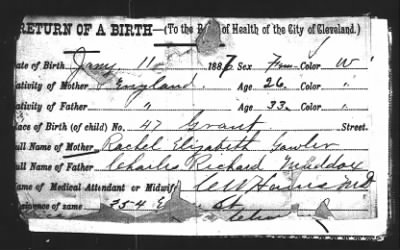 RETURN OF A BIRTH—(To the B of Health of the City of Cleveland.)
ate of Birth Jany 11 1887 Sex Fem Color W
ativity of Mother England Age 26 Color "
ativity of Father " Age 33 Color "
lace of Birth (of child) No. 47 Grant Street.
ull Name of Mother Rachel Elizabeth Gawler
ull Name of Father Charles Richard Maddox
ame of Medical Attendant or Midwife MD
esidence of same 254 E St